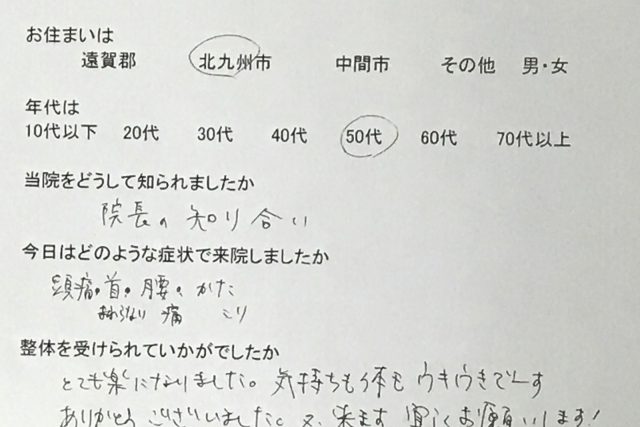 お住まいは
遠賀郡 北九州市 中間市 その他 男・女
年代は
10代以下 20代 30代 40代 50代 60代 70代以上
当院をどうして知られましたか
院長の知り合い
今日はどのような症状で来院しましたか
頭痛・首・腰・かた
まわらない 痛 こり
整体を受けられていかがでしたか
とても楽になりました。気持ちも体もウキウキでーす
ありがとうございいました。又、来ます 宜しくお願いします!